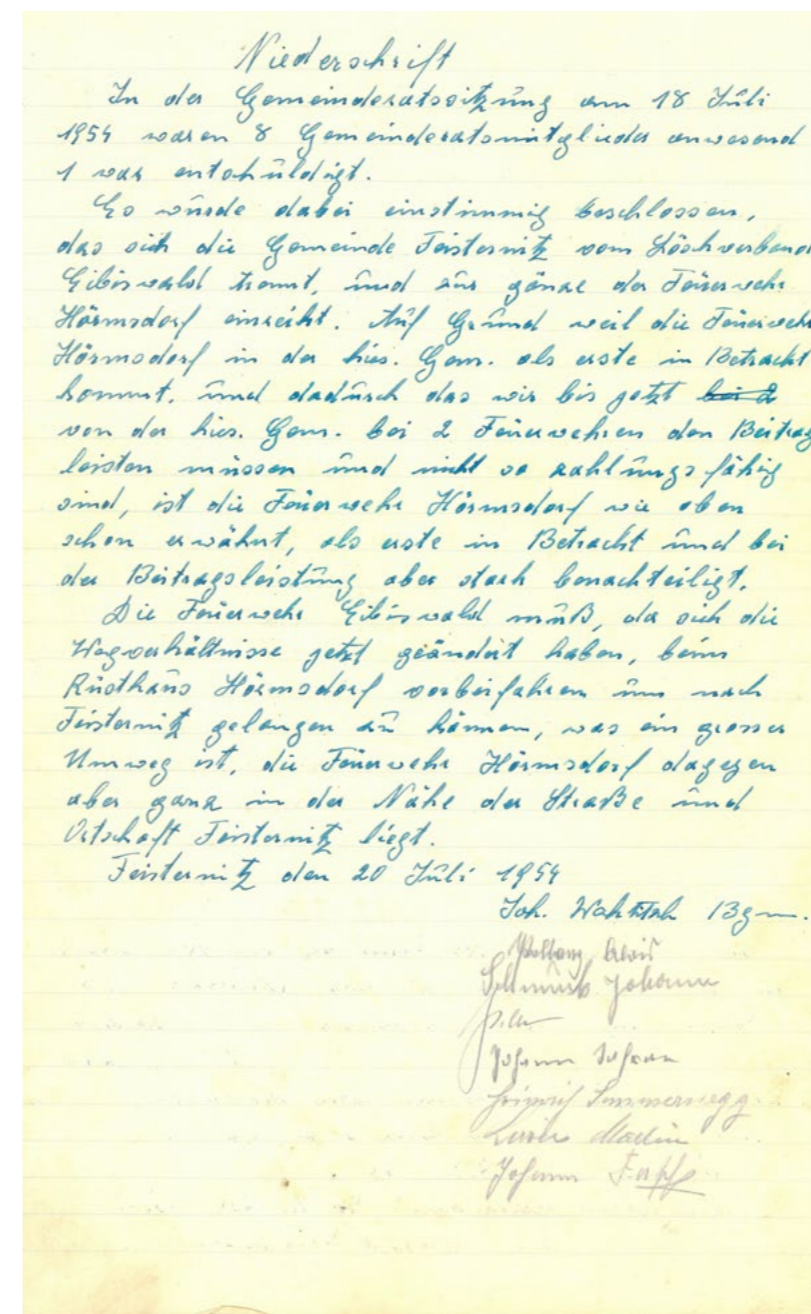 Niederschrift
In der Gemeinderatssitzung am 18 Juli
1954 waren 8 Gemeinderatsmitglieder anwesend
1 war entschuldigt.
Es wurde dabei einstimmig beschlossen,
das sich die Gemeinde Feisternitz vom Löschverband
Eibiswald trennt, und zur gänze der Feuerwehr
Hörmsdorf einreiht. Auf Grund weil die Feuerwehr
Hörmsdorf in der hies. Gem. als erste in Betracht
kommt, und dadurch das wir bis jetzt bei 2
von der hies. Gem. bei 2 Feuerwehren den Beitrag
leisten müssen und nicht so zahlungsfähig
sind, ist die Feuerwehr Hörmsdorf wie oben
schon erwähnt, als erste in Betracht und bei
der Beitragsleistung aber stark benachteiligt.
Die Feuerwehr Eibiswald muß, da sich die
Wegverhältnisse jetzt geändert haben, beim
Rüsthaus Hörmsdorf vorbeifahren um nach
Feisternitz gelangen zu können, was ein grosser
Umweg ist, die Feuerwehr Hörmsdorf dagegen
aber ganz in der Nähe der Straße und
Ortschaft Feisternitz liegt.
Feisternitz den 20 Juli 1954
Joh. Bgm.
Alois
Johann
Johann
Heinrich Summernegg
Martin
Johann